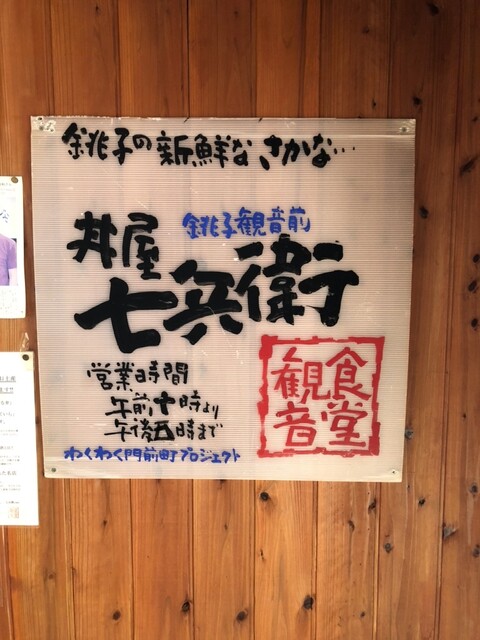 銚子の新鮮なさかな…
銚子観音前
丼屋
七兵衛
営業時間
午前十時より
午後五時まで
わくわく門前町プロジェクト
観音
食堂